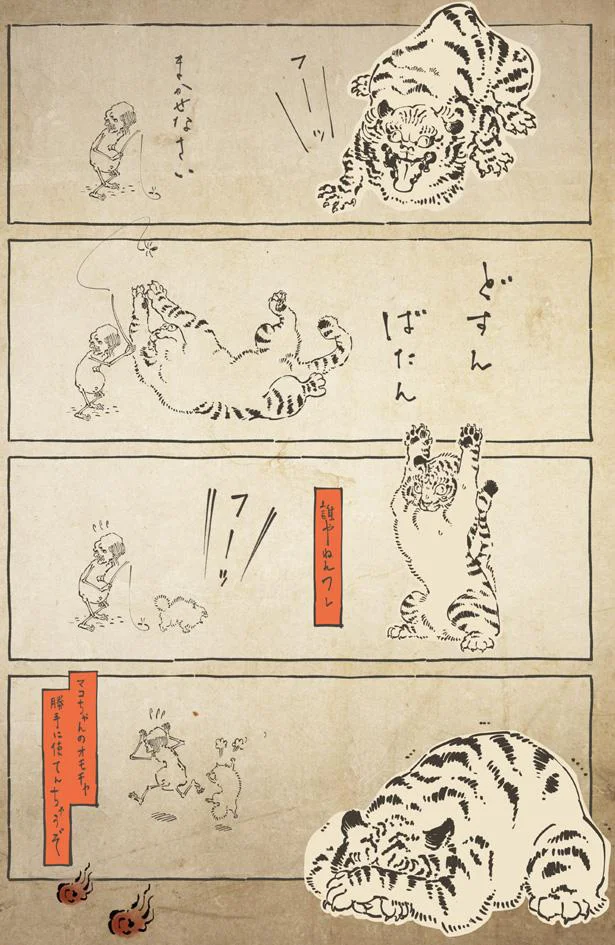 まかせなさい
フーッ
どすん
ばたん
フーッ
誰やねんワレ
マコちゃんのオモチャ
勝手に使てんちゃうぞ